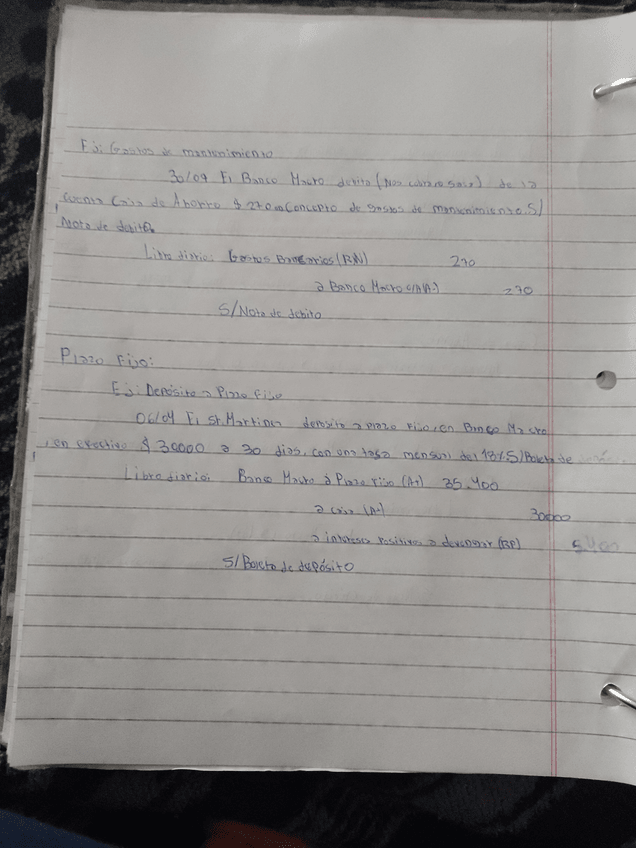 Ej: Gastos de mantenimiento
30/04 El Banco Macro debita (Nos cobra o saca) de la
cuenta Caja de Ahorro $ 270 en Concepto de gastos de mantenimiento. S/
Nota de debito.
Libro diario: Gastos Bancarios (RN) 270
a Banco Macro c/A (A-) 270
S/ Nota de debito
Plazo Fijo:
Ej: Depósito a Plazo Fijo
06/04 El sr. Martinez deposito a plazo fijo, en Banco Macro
, en efectivo $ 30000 a 30 dias, con una tasa mensual del 18%. S/ Boleta de
Libro diario: Banco Macro a Plazo Fijo (A+) 35.400
a caja (A-) 30000
a intereses Positivos a devengar (RP) 5400
S/ Boleta de depósito